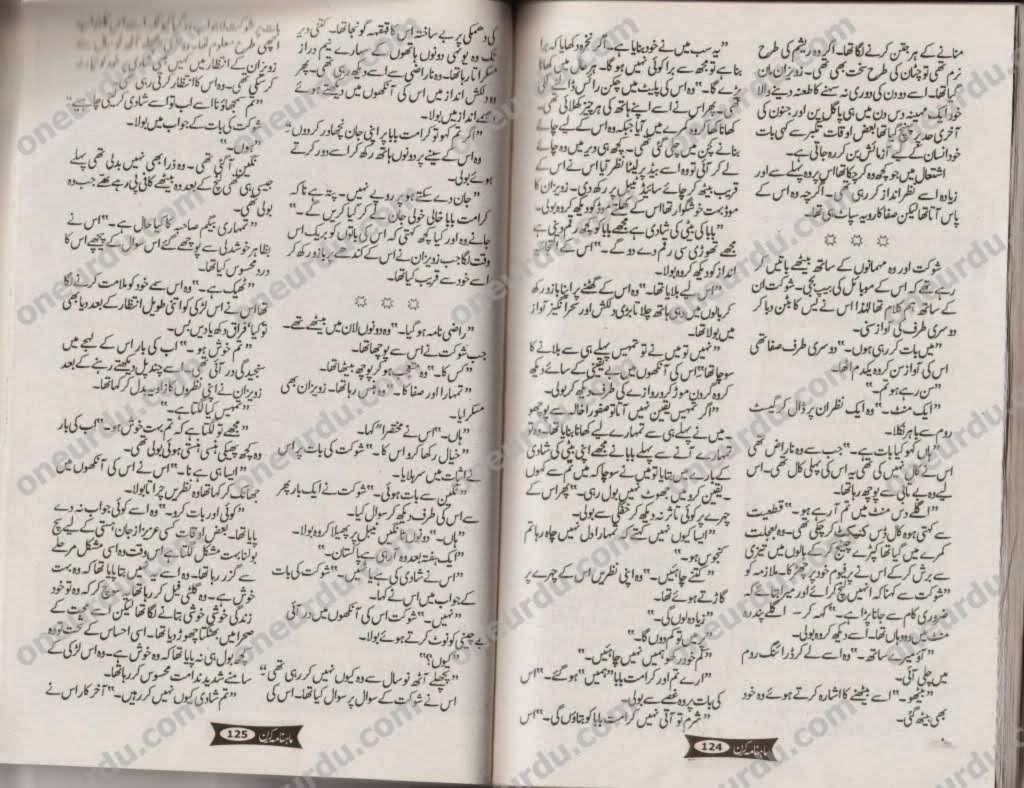 منانے کے ہر جتن کرنے لگا تھا۔ اگر وہ ریشم کی طرح
نرم تھی تو چٹان کی طرح سخت بھی تھی۔ زویزان ان
گیا تھا۔ اسے دو دن کی دوری نہ سہنے کا طعنہ دینے والا
خود ایک مہینہ دس دن میں ہی پاگل پن اور جنون کی
آخری حد پر پہنچ گیا تھا بعض اوقات تکبر سے کہی بات
خود انسان کے لیے آزمائش بن کر رہ جاتی ہے۔
اشتعال میں جو کچھ وہ کر چکا تھا اس پر وہ پہلے سے اور
زیادہ اسے نظر انداز کر رہی تھی۔ اگرچہ وہ اس کے
پاس آتا تھا لیکن صفا کا رویہ سپاٹ ہی تھا۔
شوکت اور وہ مہمانوں کے ساتھ بیٹھے باتیں کر
رہے تھے کہ اس کے موبائل کی بیپ بجی۔ شوکت ان
کے ساتھ ہم کلام تھا لہٰذا اس نے لیس کا بٹن دبا کر
دوسری طرف کی آواز سنی۔
"میں بات کر رہی ہوں۔" دوسری طرف صفا تھی
اس کی آواز سن کر وہ یکدم اٹھا۔
"سن رہے ہو تم۔"
"ایک منٹ۔" وہ ایک نظر ان پر ڈال کر گیسٹ
روم سے باہر نکلا۔
"ہاں کہو کیا بات ہے۔" جب سے وہ ناراض تھی
اس نے کال نہیں کی تھی یہ اس کی پہلی کال تھی۔ اس
لیے وہ بے تابی سے پوچھ رہا تھا۔
"اگلے دس منٹ میں تم آ رہے ہو۔" قطعیت
سے کہتی ہوہ کال ڈس کنیکٹ کر چکی تھی۔ وہ بعجلت
کمرے میں گیا تھا کپڑے چینج کر کے بالوں میں تیزی
سے برش کر کے اس نے پرفیوم خود پر چھڑکا۔ ملازمہ کو
"شوکت سے کہنا کہ انہیں لنچ کرائے اور میرا بتائے کہ
ضروری کام سے جانا پڑا ہے۔" کہہ کر۔ اگلے پندرہ
منٹ میں وہ وہاں تھا۔ اسے دیکھ کر وہ بولی۔
"آؤ میرے ساتھ۔" وہ اسے لے کر ڈرائنگ روم
میں چلی آئی۔
"بیٹھو۔" اسے بیٹھنے کا اشارہ کرتے ہوئے وہ خود
بھی بیٹھ گئی۔
"یہ سب میں نے خود بنایا ہے۔ اگر نخرہ دکھایا کہ برا
بنا ہے تو مجھ سے برا کوئی نہیں ہو گا۔ ہر حال میں کھانا
پڑے گا۔" وہ اس کی پلیٹ میں چکن رائس ڈالنے لگی
تھی۔ پھر اس نے اسے اپنے ہاتھ کی ہر چیز کھلائی تھی۔
کھانا کھا کر وہ کمرے میں آیا جبکہ وہ اس کے لیے چائے
بنانے کچن میں چلی گئی تھی۔ کچھ ہی دیر میں وہ چائے
لے کر آئی تو وہ اسے بیڈ پر لیٹا نظر آیا اس نے اس کے
قریب بیٹھ کر چائے سائیڈ ٹیبل پر رکھ دی۔ زویزان کا
موڈ بہت خوشگوار تھا اس کے موڈ کو دیکھ کر وہ بولی۔
"بابا کی بیٹی کی شادی ہے مجھے بابا کو کچھ رقم دینی ہے
مجھے تھوڑی سی رقم دے دو گے۔" اس کے
انداز کو دیکھ کر وہ بولا۔
"اس لیے بلایا تھا۔" وہ اس کے گھٹنے پر اپنا بازو رکھ
کر بالوں میں دہی ہاتھ چلاتا بڑی دلکش اور سحر انگیز آواز
میں بولا تھا۔
"نہیں تو میں نے تو تمہیں پہلے ہی سے بلانے کا
سوچا تھا" اس کی آنکھوں میں بے یقینی کے سائے دیکھ
کر وہ گردن موڑ کر دروازے کی طرف دیکھ کر بولی۔
"اگر تمہیں یقین نہیں آتا تو صفورا خالہ سے پوچھ لو
میں نے پہلے ہی سے تمہارے لیے کھانا بنایا تھا۔ وہ تو
تمہارے آنے سے پہلے بابا نے مجھے اپنی بیٹی کی شادی
کے بارے میں بتایا تو میں نے سوچا کہ میں تم سے کہوں
یقین کرو میں جھوٹ نہیں بول رہی۔" پھر اس کے
چہرے پر کوئی تاثر نہ دیکھ کر خفگی سے بولی۔
"ایسا کیوں نہیں کہتے کہ تمہارا دل نہیں چاہ رہا تم
کنجوس ہو۔"
"کتنے چاہئیں۔" وہ اپنی نظریں اس کے چہرے پر
گاڑتے ہوئے تھا۔
"زیادہ لوں گی۔"
"پر میں تو کم دوں گا۔"
"تم خود رکھو ہمیں نہیں چاہئیں۔"
"ارے تم اور کرامت بابا "ہمیں" ہو گئے۔" اس
کی بات پر وہ غصے سے بولی۔
"شرم تو آتی نہیں کرامت بابا کو بتاؤں گی۔" اس
ماہنامہ کرن 124
کی دھمکی پر بے ساختہ اس کا قہقہہ گونجا تھا۔ کتنی دیر
تک وہ یونہی دونوں ہاتھوں کے سہارے نیم دراز
مسکراتا رہا تھا۔ وہ ناراضی سے اسے دیکھ رہی تھی۔ پھر
وہ دلکش انداز میں اس کی آنکھوں میں دیکھتے ہوئے
انداز میں بولا۔
"اگر تم کہو تو کرامت بابا پر اپنی جان نچھاور کر دوں۔"
وہ اس کے سینے پر دونوں ہاتھ رکھ کر اسے دور کرتے
ہوئے بولی۔
"جان دے سکتے ہو پر روپے نہیں۔ پتہ ہے نا کہ
کرامت بابا خالی خولی جان لے کر کیا کریں گے۔"
جانے وہ اور کیا کچھ کہتی کہ اس کی باتوں کو بریک اس
وقت لگا جب زویزان نے اس کے کندھے پر بازو رکھ کر
اسے خود سے قریب کیا تھا۔
"راضی نامہ ہو گیا۔" وہ دونوں لان میں بیٹھے تھے۔
جب شوکت نے اس سے پوچھا تھا۔
"کس کا۔" وہ متعجب ہو کر پوچھ بیٹھا تھا۔
"تمہارا اور صفا کا۔" وہ ہنس رہا تھا۔ زویزان بھی
مسکرایا۔
"ہاں۔" اس نے مختصراً کہا۔
"خیال رہ کھا کرو اس کا۔" شوکت کی بات پر اس
نے اثبات میں سر ہلایا۔
"نگین سے بات ہوئی۔" شوکت نے ایک بار پھر
سے اس کی طرف دیکھ کر سوال کیا۔
"ہاں۔" وہ ٹانگیں ٹیبل پر پھیلا کر وہ بولا۔
"ایک ہفتہ بعد وہ آ رہی ہے پاکستان۔"
"اس نے شادی کی ہے یا نہیں۔" شوکت کی بات
کے جواب میں اس نے کہا۔
"نہیں۔" شوکت اس کی آنکھوں میں در آئی
بے چینی کو نوٹ کرتے ہوئے بولا۔
"کیوں؟"
"پچھلے آٹھ نو سال سے وہ کیوں نہیں کر رہی تھی۔"
اس نے شوکت کے سوال پر سوال کیا تھا۔ اس کی
بات پر شوکت لاجواب ہو گیا
اچھی طرح معلوم تھا۔ وہ
زویزان کے انتظار میں کہیں بھی شادی
کر سکتی تھی۔ وہ اس کا انتظار کر رہی تھی۔
"تم سمجھاؤ نا اسے اب تو اسے شادی کر لینی چاہیے۔"
شوکت کی بات کے جواب میں بولا۔
"ہوں۔"
نگین آ گئی تھی۔ وہ ذرا بھی نہیں بدلی تھی پہلے
جیسی ہی تھی لنچ کے بعد وہ بیٹھے کافی پی رہے تھے جب وہ
بولی تھی۔
"تمہاری بیگم صاحبہ کا کیا حال ہے۔" اس نے
بظاہر خوشدلی سے پوچھے گئے اس سوال کے پیچھے اس کا
درد محسوس کیا تھا۔
"ٹھیک ہے۔" وہ اس سے خود کو ملامت کرنے لگا
تھا اس نے اس لڑکی کو اتنی طویل انتظار کے بعد دیا بھی
تو کیا؟ فراق دکھ یادیں بس۔
"تم خوش ہو۔" اب کی بار اس کے لہجے میں
سنجیدگی در آئی تھی۔ اسے چند پل دیکھتے رہنے کے بعد
زویزان نے اپنی نظروں کا زاویہ بدل کر کہا تھا۔
"تمہیں کیا لگتا ہے۔"
"مجھے تو لگتا ہے کہ تم بہت خوش ہو۔" اب کی بار
وہ کچھ پھیکی ہنسی ہنستی ہوئی بولی تھی۔
"ایسا ہی ہے نا۔" اس نے اس کی آنکھوں میں
جھانک کر کہا تھا وہ نظریں چرا تا بولا۔
"کوئی اور بات کرو۔" وہ اسے کوئی جواب نہ دے
پایا تھا۔ بعض اوقات کسی عزیز از جان ہستی کے لیے سچ
بولنا بہت مشکل لگتا ہے اس وقت وہ اسی مشکل مرحلے
سے گزر رہا تھا۔ وہ اسے یہ نہیں بتا پایا تھا کہ وہ بہت
خوش ہے۔ وہ گلٹی فیل کر رہا تھا۔ یہ سوچ کر کہ وہ تو خود
زندگی خوشی خوشی بتانے لگا تھا لیکن اسے محبت کے
صحرا میں بھٹکتا چھوڑ دیا تھا۔ اسی احساس کے تحت وہ
کچھ بول ہی نہ پایا تھا کہ وہ خوش ہے۔ وہ اس لڑکی کے
سامنے شدید ندامت محسوس کر رہا تھا۔
"تم شادی کیوں نہیں کر رہیں۔" آخر کار اس نے
ماہنامہ کرن 125
oneurdu.com